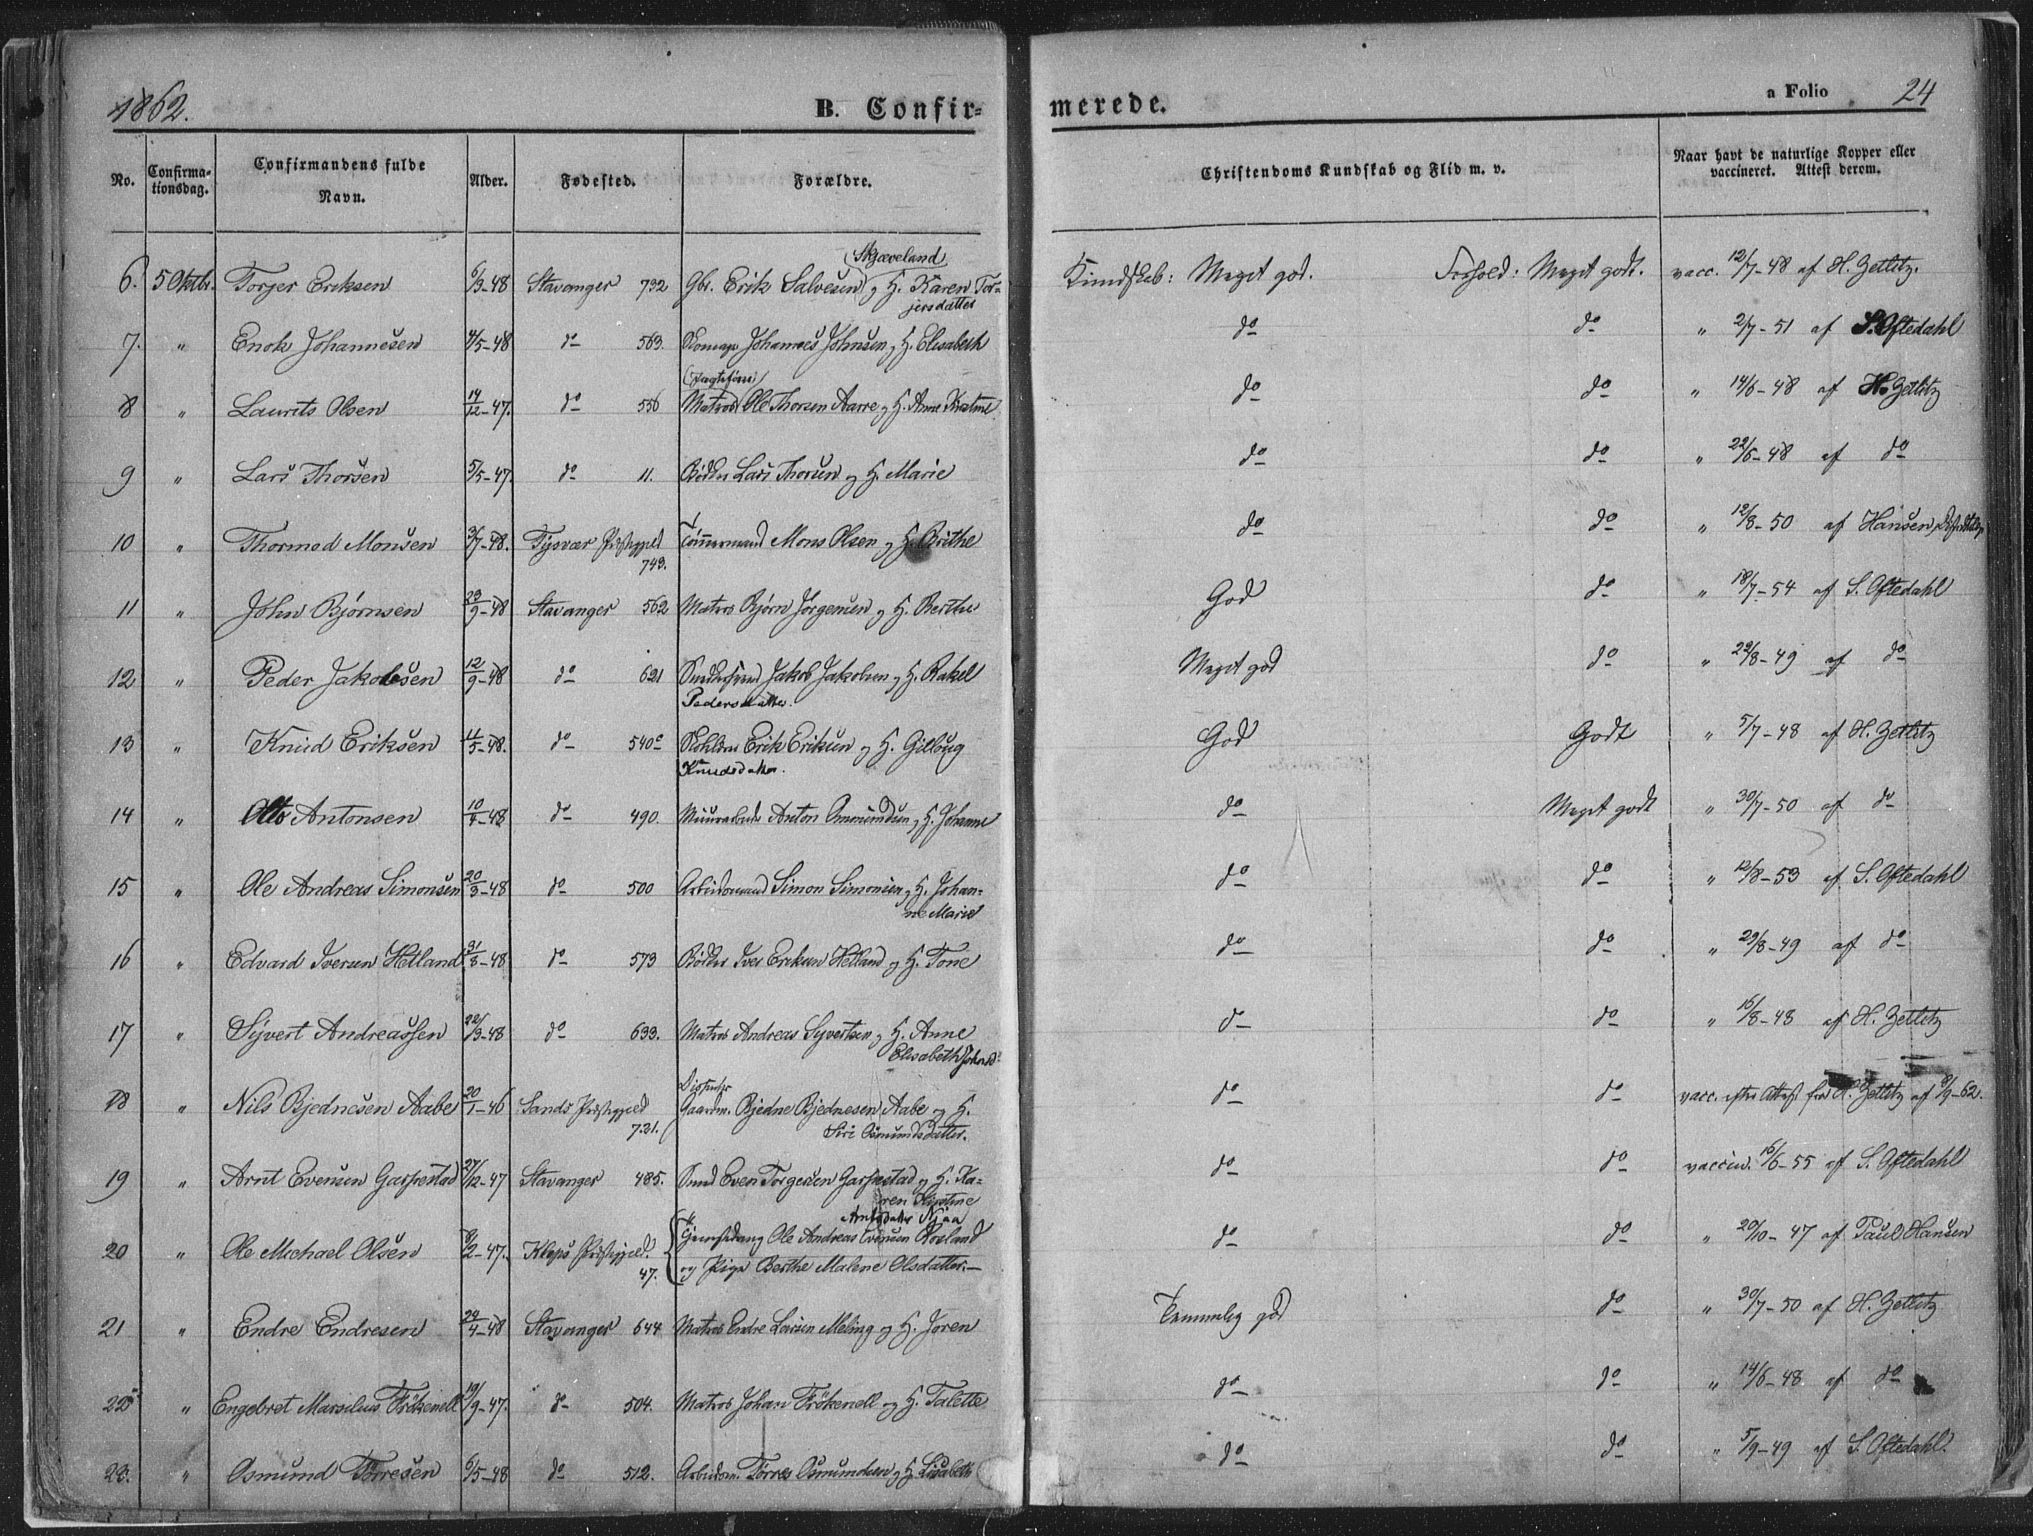 1862.
B. Confir-
merede.
a Folio 24
No.
Confirma-
tionsdag.
Confirmandens fulde
Navn.
Alder.
Fødested.
Forældre.
Christendoms Kundskab og Flid m. v.
Naar havt de naturlige Kopper eller
vaccineret. Attest derom.
Skjæveland
6. 5 Oktbr. Torger Eriksen 6/3-48 Stavanger 732 Gbr. Erik Salvesen og H. Karen Tor- Kundskab: Meget god. Forhold: Meget godt. vacc. 12/7-48 af H. Zetlitz.
jersdatter
7. " Enok Johannesen 4/5-48 do 563. Johannes Johnsen og H. Elisabeth do do " 2/7-51 af S. Oftedahl
8 " Laurits Olsen 14/12-47. do 556 Matros Ole Thorsen Aarre og H. Anne Kristine do do " 14/6-48 af H. Zetlitz
9 " Lars Thorsen 5/5-47. do 11. Bødker Lars Thorsen og H. Marie do do " 22/6-48 af do
10 " Thormod Monsen 3/7-48. Tysvær Præstegjeld Tømmermand Mons Olsen og H. Brithe do do " 12/8-50 af Hansen,
743.
11 " John Bjørnsen 23/9-48 Stavanger 562 Matros Bjørn Jørgensen og H. Berthe God do " 18/7-54 af S. Oftedahl
12 " Peder Jakobsen 12/9-48 do 621 Jakob Jakobsen og H. Rakel Meget god do " 22/8-49 af do
Pedersdatter.
13 " Knud Eriksen 11/5-48. do 540c Erik Eriksen og H. Gilbug God Godt " 5/7-48 af H. Zetlitz
Knudsdatter.
14 " Otto Antonsen 10/4-48 do 490. Muurarbeider Anton Omundsen og H. Johanne do Meget godt " 30/7-50 af do
15 " Ole Andreas Simonsen 20/3-48 do 500 Arbeidsmand Simon Simonsen og H. Johan- do do " 12/8-53 af S. Oftedahl
ne Marie
16 " Edvard Iversen Hetland 31/3-48 do 573 Bødker Iver Eriksen Hetland og H. Tone do do " 29/8-49 af do
17 " Syvert Andreassen 22/3-48 do 633. Matros Andreas Syvertsen og H. Anne do do " 16/8-48 af H. Zetlitz
Elisabeth Johnsd:
18 " Nils Bjednesen Aabe 20/1-46 Sands Præstegjeld Gaardm. Bjedne Bjednesen Aabe og H. do do vacc. efter Attest fra H. Zetlitz af 8/9-62.
721. Siri Osmundsdatter.
19 " Arnt Evensen Garpestad 27/12-47 Stavanger 485. Smed Even Torgersen Garpestad og H. Ka- do do vaccin. 16/6-55 af S. Oftedahl
ren Kirstine
Arntsdatter Njaa
20 " Ole Michael Olsen 8/2-47. Kleps Præstegjeld. Ole Andreas Evensen Rosland do do " 20/10-47 af Paul Hansen
47. og Pige Berthe Malene Olsdatter.-
21 " Endre Endresen 24/4-48 Stavanger 644 Matros Endre Larsen Meling og H. Joren Temmelig god do " 30/7-50 af H. Zetlitz
22 " Engebret Marselius Frøkenell 19/9-47. do 504. Matros Johan Frøkenell og H. Talette do do " 14/6-48 af do
23. " Osmund Tørresen 6/5-48 do 512. Arbeidsm. Tørres Osmundsen og H. Lisabeth do do " 5/9-49 af S. Oftedahl.